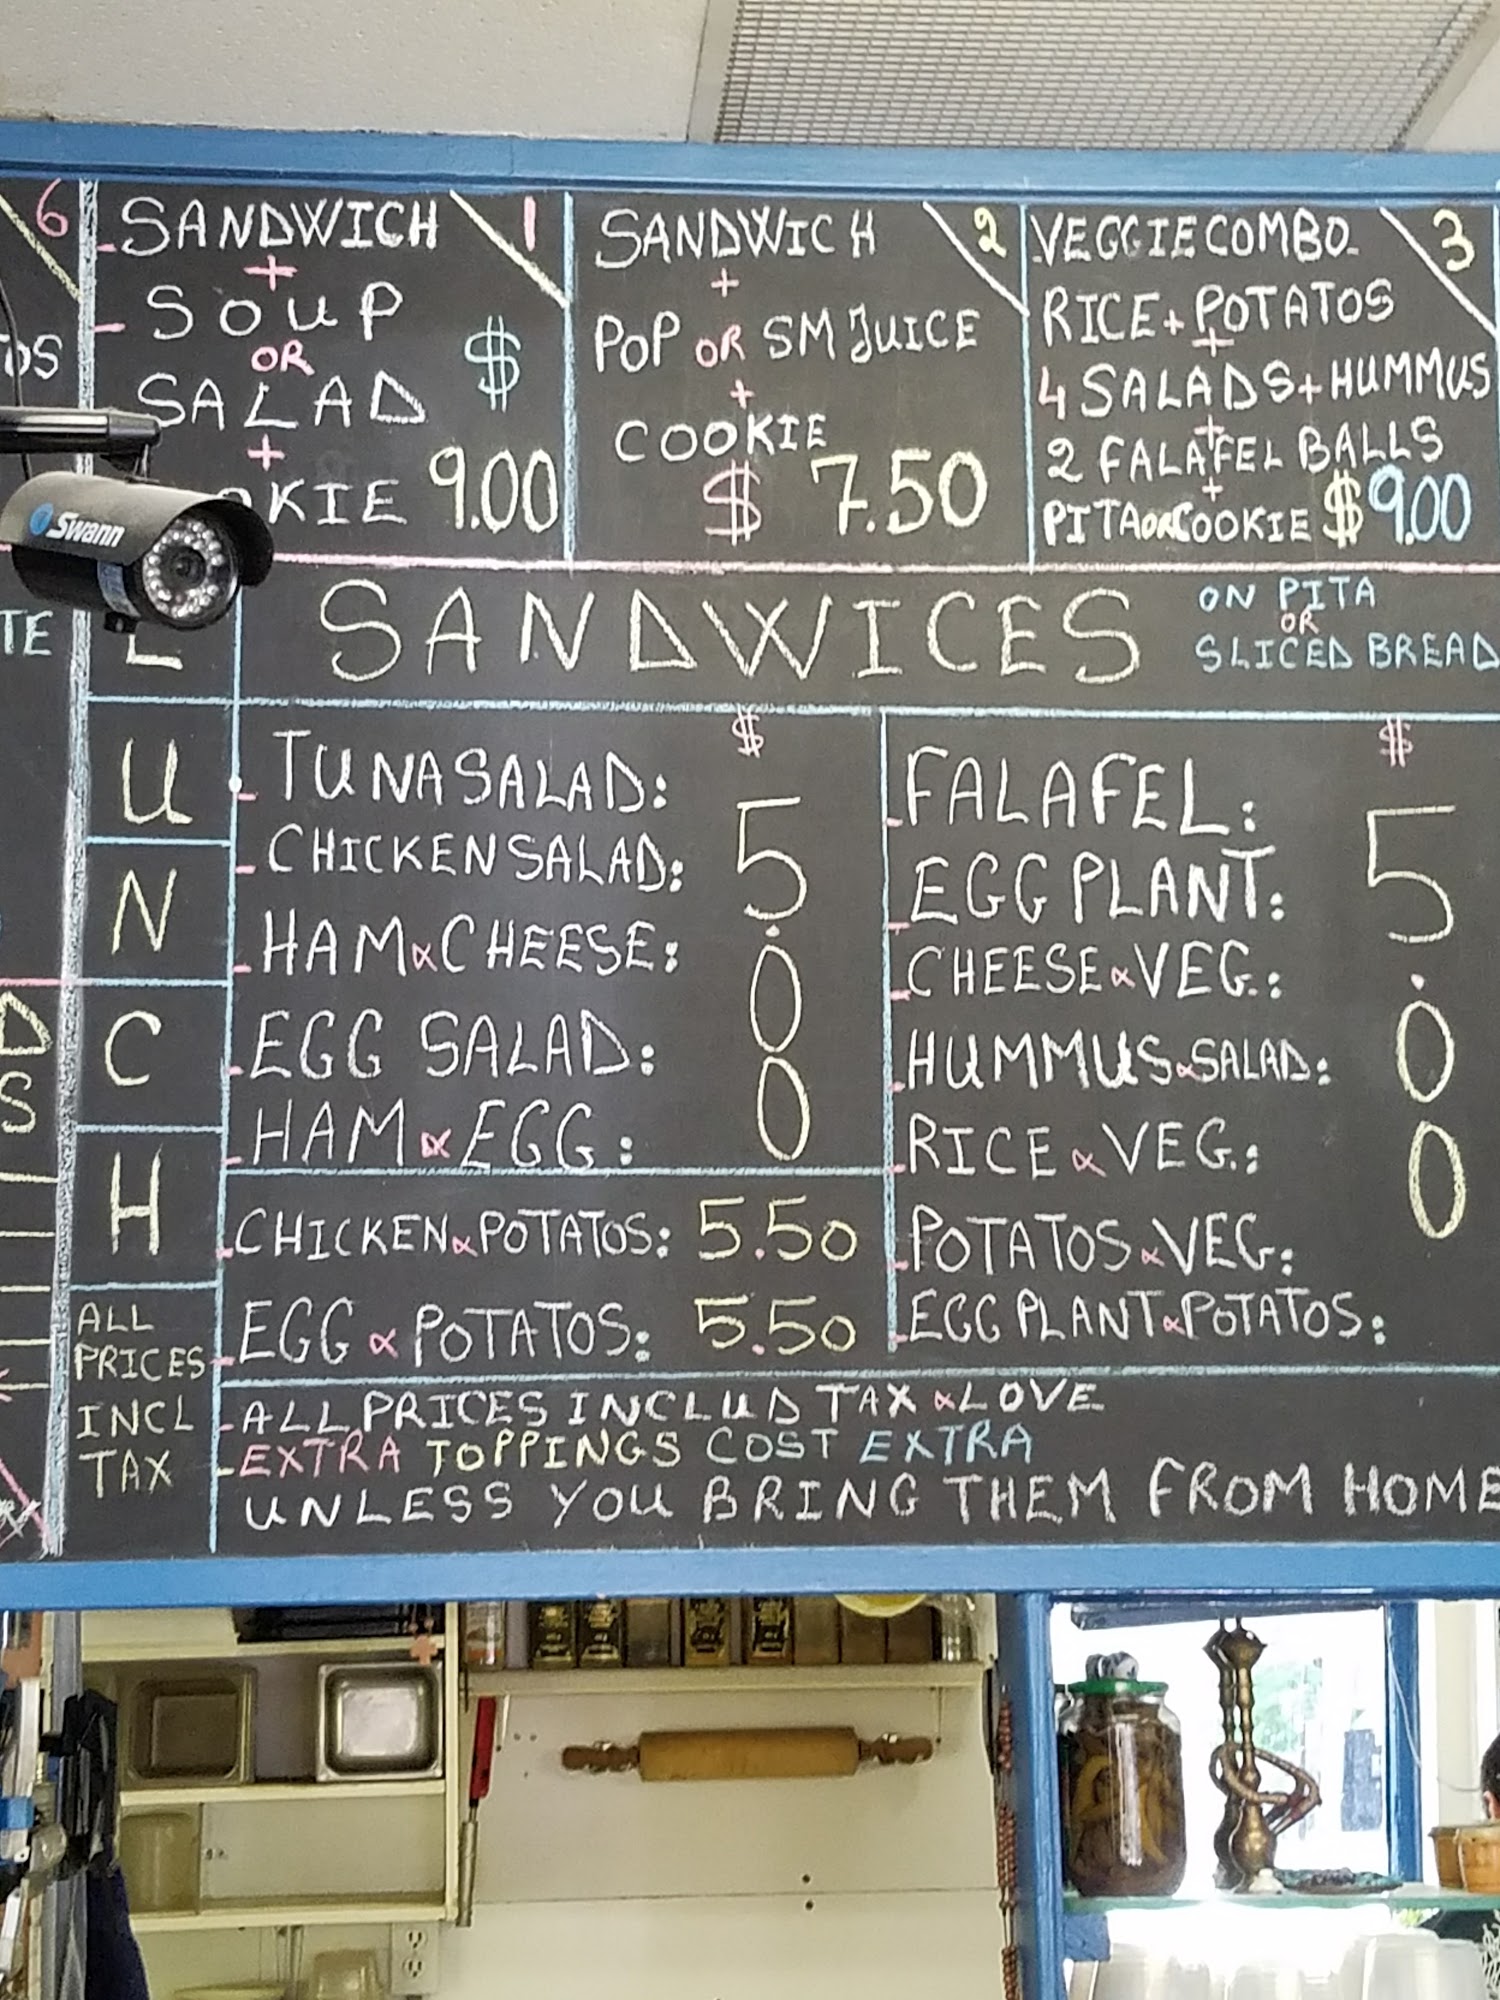 6
SANDWICH 1
+
SOUP
OR
SALAD $
+
KIE 9.00
SANDWICH 2
+
POP OR SM JUICE
+
COOKIE
$ 7.50
VEGGIE COMBO 3
RICE + POTATOS
+
4 SALADS + HUMMUS
+
2 FALAFEL BALLS
+
PITA OR COOKIE $ 9.00
Swann
L
U
N
C
H
SANDWICES
ON PITA
OR
SLICED BREAD
$
TUNA SALAD:
CHICKEN SALAD:
HAM & CHEESE:
EGG SALAD:
HAM & EGG:
5.00
CHICKEN & POTATOS: 5.50
EGG & POTATOS: 5.50
$
FALAFEL:
EGGPLANT:
CHEESE & VEG.:
HUMMUS & SALAD:
RICE & VEG.:
POTATOS & VEG:
EGGPLANT & POTATOS:
5.00
ALL
PRICES
INCL
TAX
- ALL PRICES INCLUD TAX & LOVE
- EXTRA TOPPINGS COST EXTRA
UNLESS YOU BRING THEM FROM HOME